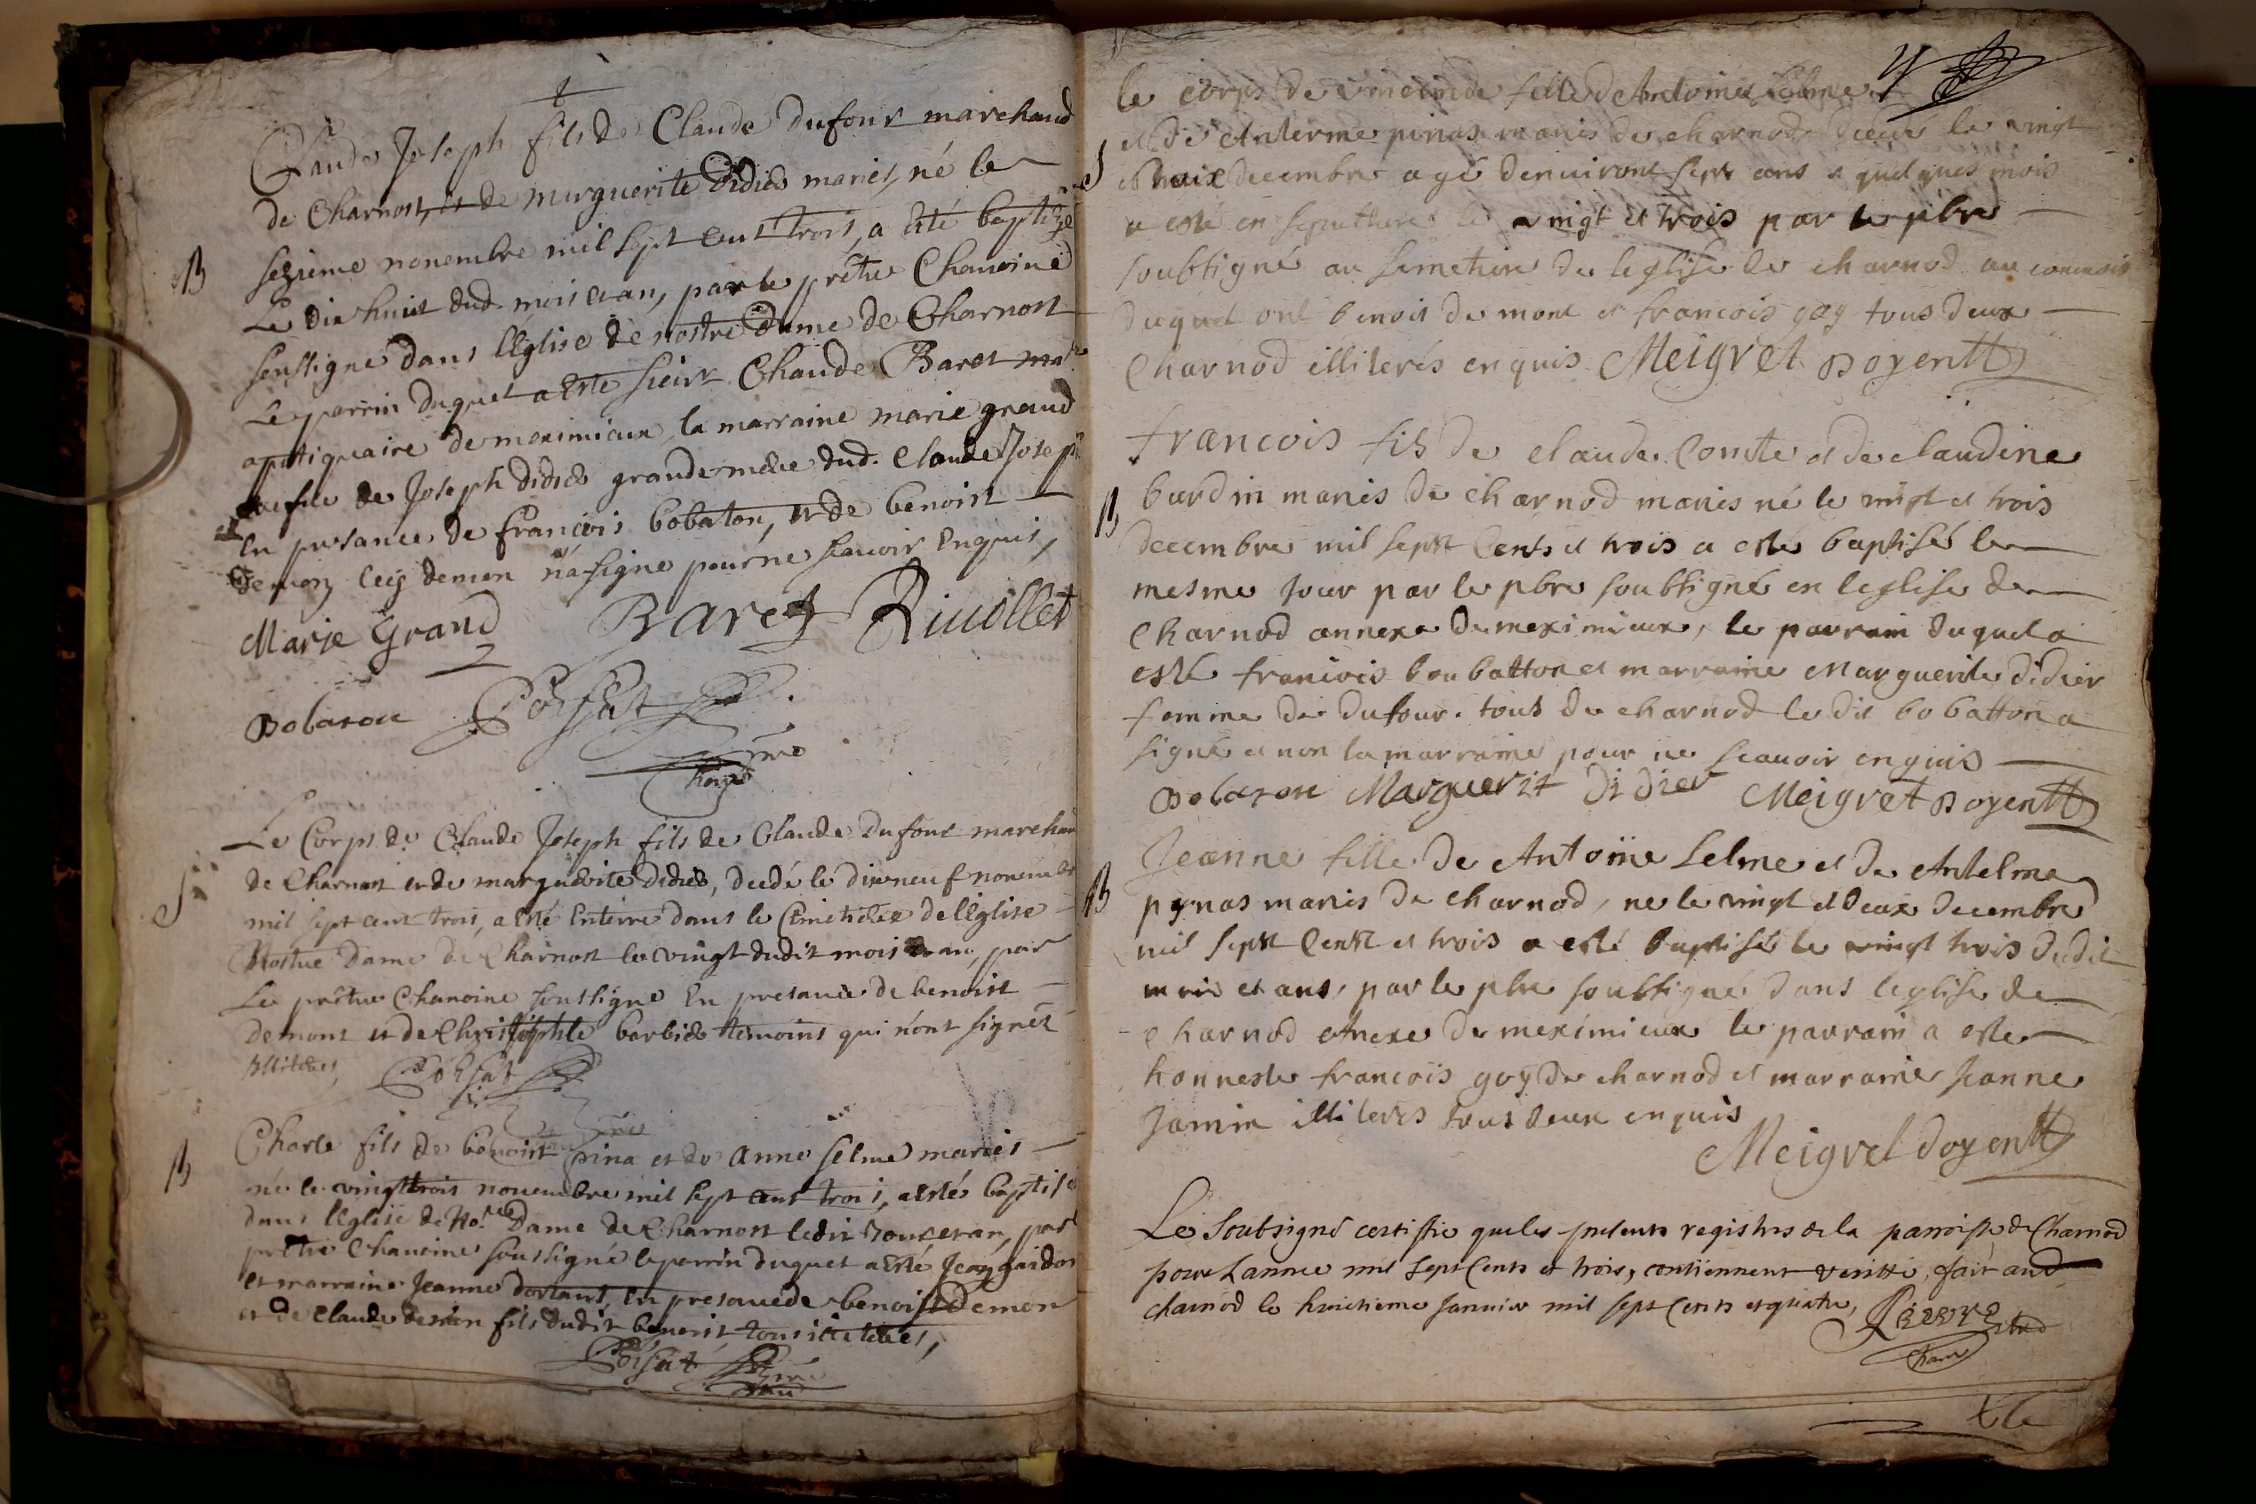 Claude Joseph fils de Claude dufour marchand
de Charnost, et de marguerite Didier mariés, né le
B
sezieme novembre mil sept cent trois, a été baptizé
Le dix huit dud. mois et an, par le prêtre Chanoine
soussigné dans l'Eglise de nostre Dame de Charnost
Le parrin duquel a esté sieur Claude Baret me
apotiquaire de meximieux la marraine marie grand
veufve de Joseph didier grande mere dud. Claude Joseph
en presance de françois bobaton, et de benoist
demon ceis demon n'a signé pour ne scavoir Enquis,
Marie Grand Baret Rivollet
Bobaton Poysat
Le Corps de Claude Joseph fils de Claude Dufour marchand
de Charnost et de marguerite Didier, decedé le dixneuf novembre
S
mil sept cent trois, a esté Enterré dans le Cimetiere de l'Eglise
Nostre Dame de Charnost le vingt dudit mois et an, par
Le prêtre Chanoine soussigné En presance de benoist
demont et de Christophle barbier temoins qui n'ont signés
Illiterés, Poysat
Charle fils de benoist pina et de anne selme mariés
B
né le vingt trois novembre mil sept cent trois, a esté baptisé
dans l'Eglise de No.re Dame de Charnost ledit jour et an, par
prêtre Chanoine soussigné le parrin duquel a esté Jean gaidon
et marraine Jeanne dortant, En presance de benoist Demon
et de Claude demon fils dudit benoist tous illiterés,
Poysat
le corps de fille de Antoine selme
et de Anterme pinas mariés de charnod decedé le vingt
S
decembre agé denviront sept ans et quelques mois
a esté en sepulture le vingt et trois par le pbre
soubsigné au simetiere de leglise de charnod au
duquel ont benoit demont et francois goy tous deux
Charnod illiterés enquis Meigret Doyent
francois fils de claude Comte et de claudine
B
burdin mariés de charnod mariés né le vingt et trois
decembre mil sept Cents et trois a esté baptisé le
mesme jour par le pbre soubsigné en leglise de
Charnod annexe de meximieux, le parrain duquel a
esté francois boubatton et marraine Marguerite didier
femme de dufour. tous de charnod le dit bobatton a
signé et non la marraine pour ne scavoir enquis
Bobaton Marguerit Didier Meigret Doyent
Jeanne fille de Antoine Selme et de Antelme
B
pynas mariés de charnod, né le vingt et deux decembre
mil sept Cent et trois a esté baptisé le vingt trois dudit
mois et ans, par le pbre soubsigné dans leglise de
charnod Anexe de meximieux le parrain a esté
honneste francois goy de charnod et marraine Jeanne
Jamin illiterés tous deux enquis
Meigret doyent
Le Soubsigné certiffie que les presents registres de la parroisse de Charnod
pour L'annee mil sept Cents et trois, contiennent verité, fait aud
charnod le huictieme Janvier mil sept Cents et quatre,